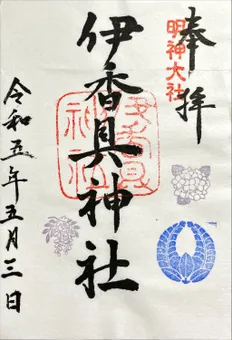 奉拝
明神大社
伊香具神社
伊香具
神社
令和五年五月三日